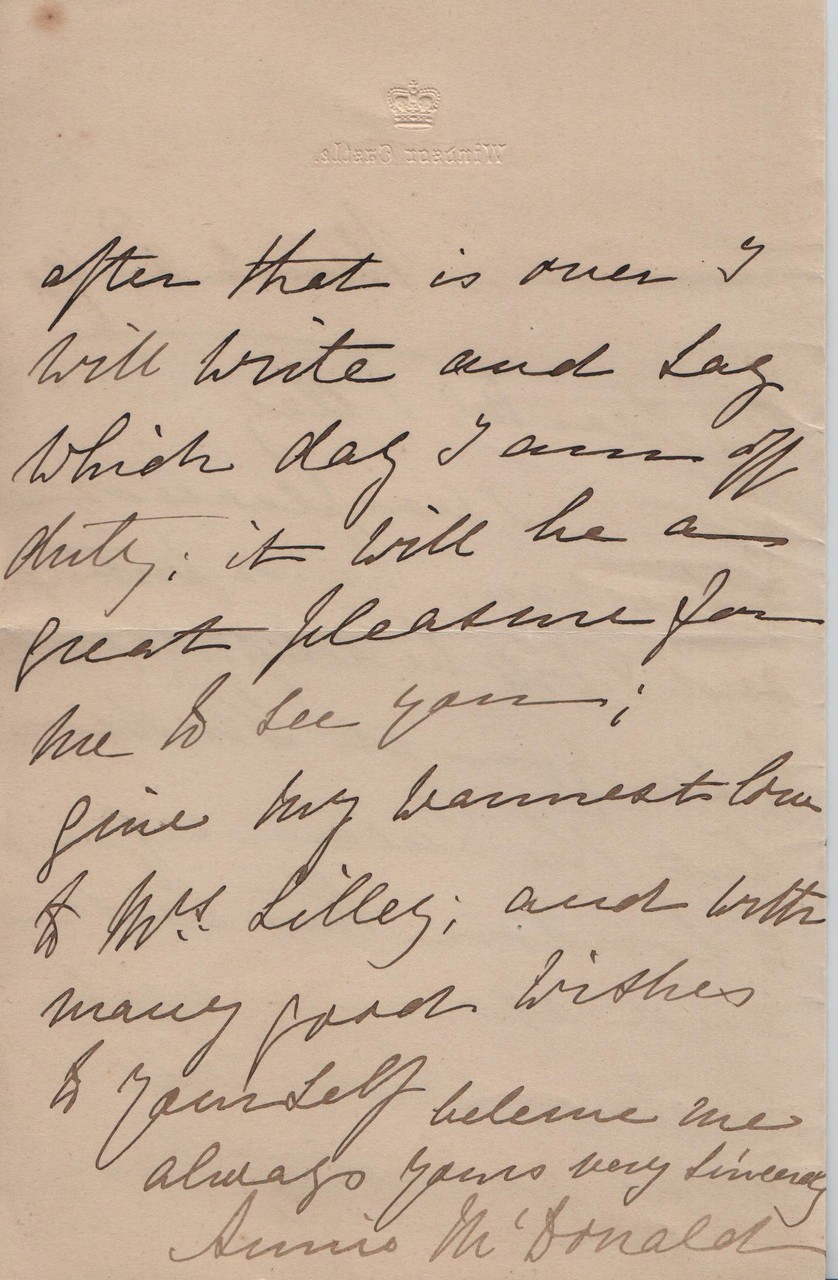 Windsor Castle.
after that is over I
will write and say
which day I am off
duty; it will be a
great pleasure for
me to see you;
give my warmest love
to Mrs. Lilley; and with
many good wishes
to yourself believe me
always yours very sincerely
Annie McDonald